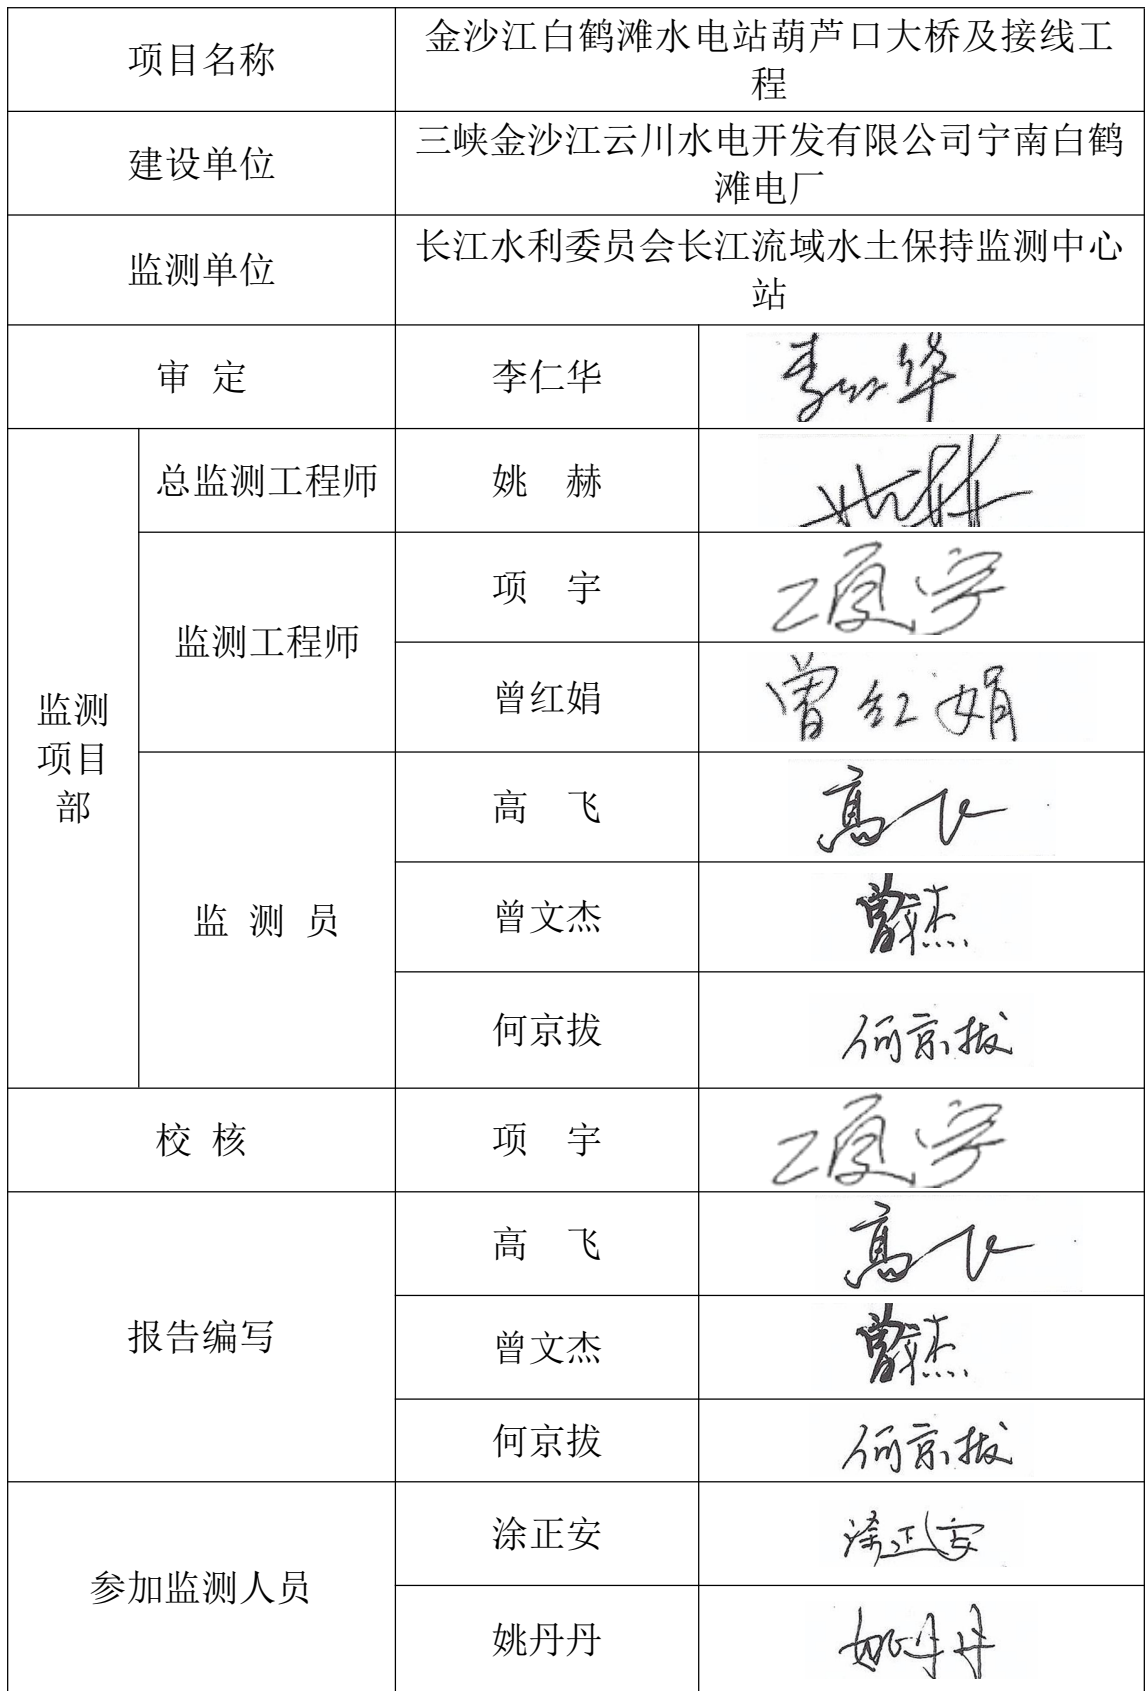 项目名称
金沙江白鹤滩水电站葫芦口大桥及接线工
程
建设单位
三峡金沙江云川水电开发有限公司宁南白鹤
滩电厂
监测单位
长江水利委员会长江流域水土保持监测中心
站
审 定
李仁华
李仁华
监测
项目
部
总监测工程师
姚 赫
姚赫
监测工程师
项 宇
项宇
曾红娟
曾红娟
监 测 员
高 飞
高飞
曾文杰
曾文杰
何京拔
何京拔
校 核
项 宇
项宇
报告编写
高 飞
高飞
曾文杰
曾文杰
何京拔
何京拔
参加监测人员
涂正安
涂正安
姚丹丹
姚丹丹